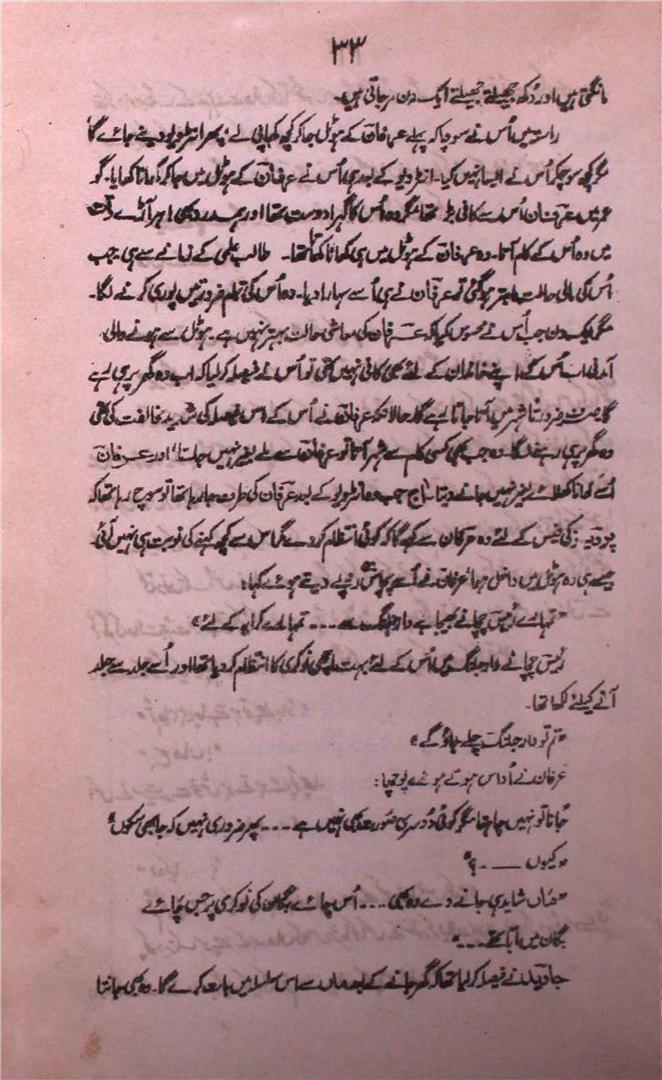 ۳۳
مانگتی ہیں اور دُکھ جھیلتے جھیلتے ایک دن مر جاتی ہیں۔
راستہ میں اُس نے سوچا کہ پہلے عرفان کے ہوٹل جا کر کچھ کھا پی لے، پھر انٹرویو دینے جائے گا
مگر کچھ سوچ کر اُس نے ایسا نہیں کیا۔ انٹرویو کے بعد ہی اُس نے عرفان کے ہوٹل میں جا کر کھانا کھایا۔ گو
عمر میں عرفان اُس سے کافی بڑا تھا مگر وہ اُس کا گہرا دوست تھا اور ہمدرد بھی اور آڑے وقت
میں وہ اُس کے کام آتا۔ وہ عرفان کے ہوٹل میں ہی کھانا کھاتا تھا۔ طالب علمی کے زمانے سے ہی جب
اُس کی مالی حالت ابتر ہو گئی تو عرفان نے ہی اُسے سہارا دیا۔ وہ اُس کی تمام ضرورتیں پوری کرنے لگا۔
مگر ایک دن جب اُس نے محسوس کیا کہ عرفان کی معاشی حالت بہتر نہیں ہے۔ ہوٹل سے ہونے والی
آمدنی اب اُس کے اپنے خاندان کے لئے بھی کافی نہیں تھی تو اُس نے فیصلہ کر لیا کہ اب وہ گھر پر ہی رہے
گا صرف ضرورتاً شہر میں آتا جاتا رہے گا، حالانکہ عرفان نے اُس کے اس فیصلہ کی شدید مخالفت کی تھی
وہ گھر پر ہی رہنے لگا۔ وہ جب بھی کسی کام سے شہر آتا تو عرفان سے ملے بغیر نہیں جاتا، اور عرفان
اُسے کھانا کھلائے بغیر نہیں جانے دیتا۔ آج جب وہ انٹرویو کے بعد عرفان کی طرف جا رہا تھا تو سوچ رہا تھا کہ
کی فیس کے لئے وہ عرفان سے کہے گا کہ کوئی انتظام کر دے مگر اس سے کچھ کہنے کی نوبت ہی نہیں آئی۔
جیسے ہی وہ ہوٹل میں داخل ہوا، عرفان نے اُسے پچاس روپے دیتے ہوئے کہا:
"تمہارے رئیس چچا نے بھیجا ہے دارجلنگ سے ۔۔۔ تمہارے کرایہ کے لئے"
رئیس چچا نے دارجلنگ میں اُس کے لئے بہت اچھی نوکری کا انتظام کر دیا تھا اور اُسے جلد سے جلد
آنے کیلئے لکھا تھا۔
"تم تو دارجلنگ چلے جاؤ گے"
عرفان نے اُداس ہوتے ہوئے پوچھا:
"جانا تو نہیں چاہتا مگر کوئی دوسری صورت بھی نہیں ہے ۔۔۔ پھر ضروری نہیں کہ جا بھی سکوں"
"کیوں ــــ ؟"
"ماں شاید ہی جانے دے وہ بھی ۔۔۔ اُس چائے بگان کی نوکری پر جس چائے
بگان میں ابا تھے ۔۔۔"
جاوید نے فیصلہ کر لیا تھا کہ گھر جانے کے بعد ماں سے اس سلسلہ میں بات کرے گا۔ وہ بھی جانتا